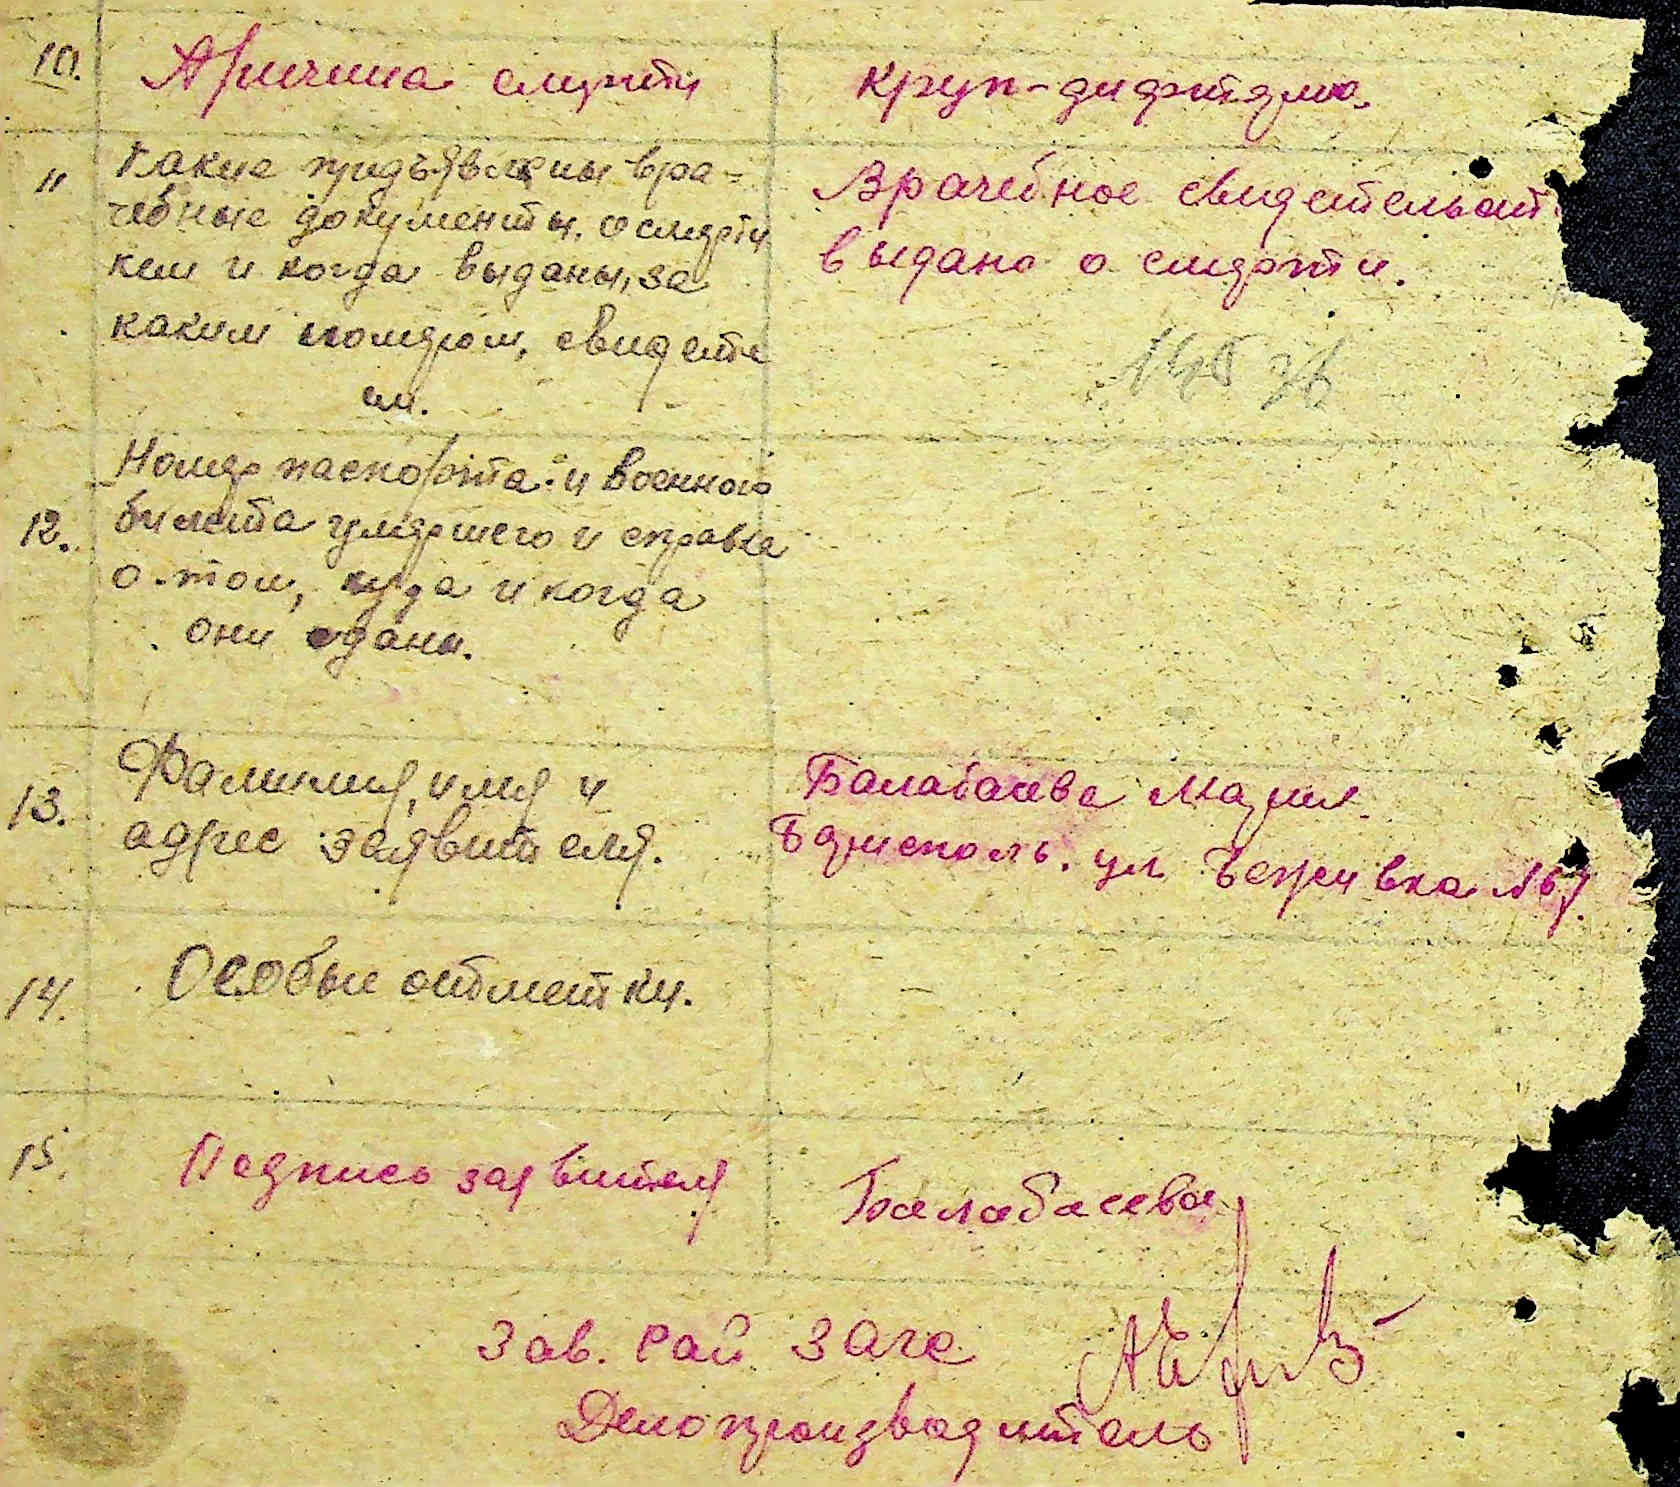 10. Причина смерти
круп-дифтерия.
11 Какие предъявлены вра-
чебные документы о смерти
кем и когда выданы, за
каким номером, свидете
ем.
Врачебное свидетельст
выдано о смерти.
12. Номер паспорта и военного
билета умершего и справка
о том, куда и когда
они сданы.
13. Фамилия, имя и
адрес заявителя.
Балабаева Мария
Борисполь. ул
14. Особые отметки.
15. Подпись заявителя
Балабасева
Зав. Рай Загс
Делопроизводитель